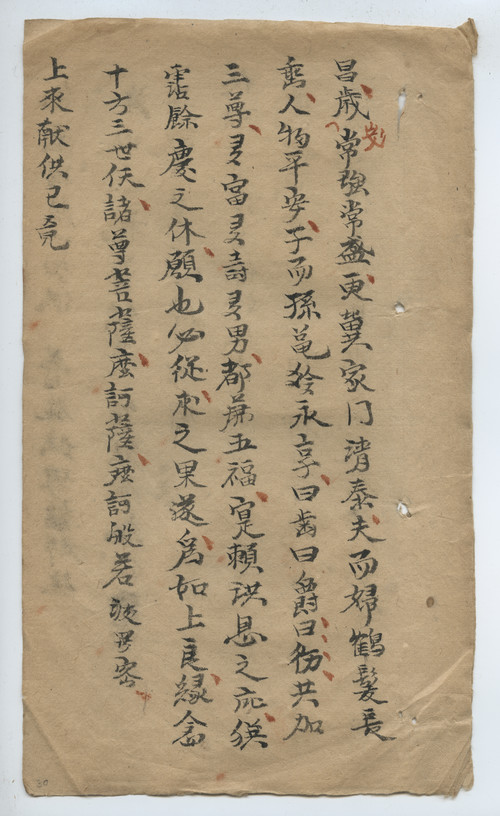 昌歲常強常盛更冀家门清泰夫而婦鶴髮長
垂人物平安子而孫龜齡永享曰歯曰爵曰共加
三尊多富多壽多男都兼五福寔賴洪恩之庇獲
霑餘慶之休願也必從來之果遂爲如上良緣念
十方三世仸諸尊菩薩摩訶薩摩訶般若波罗密
上來献供已竟